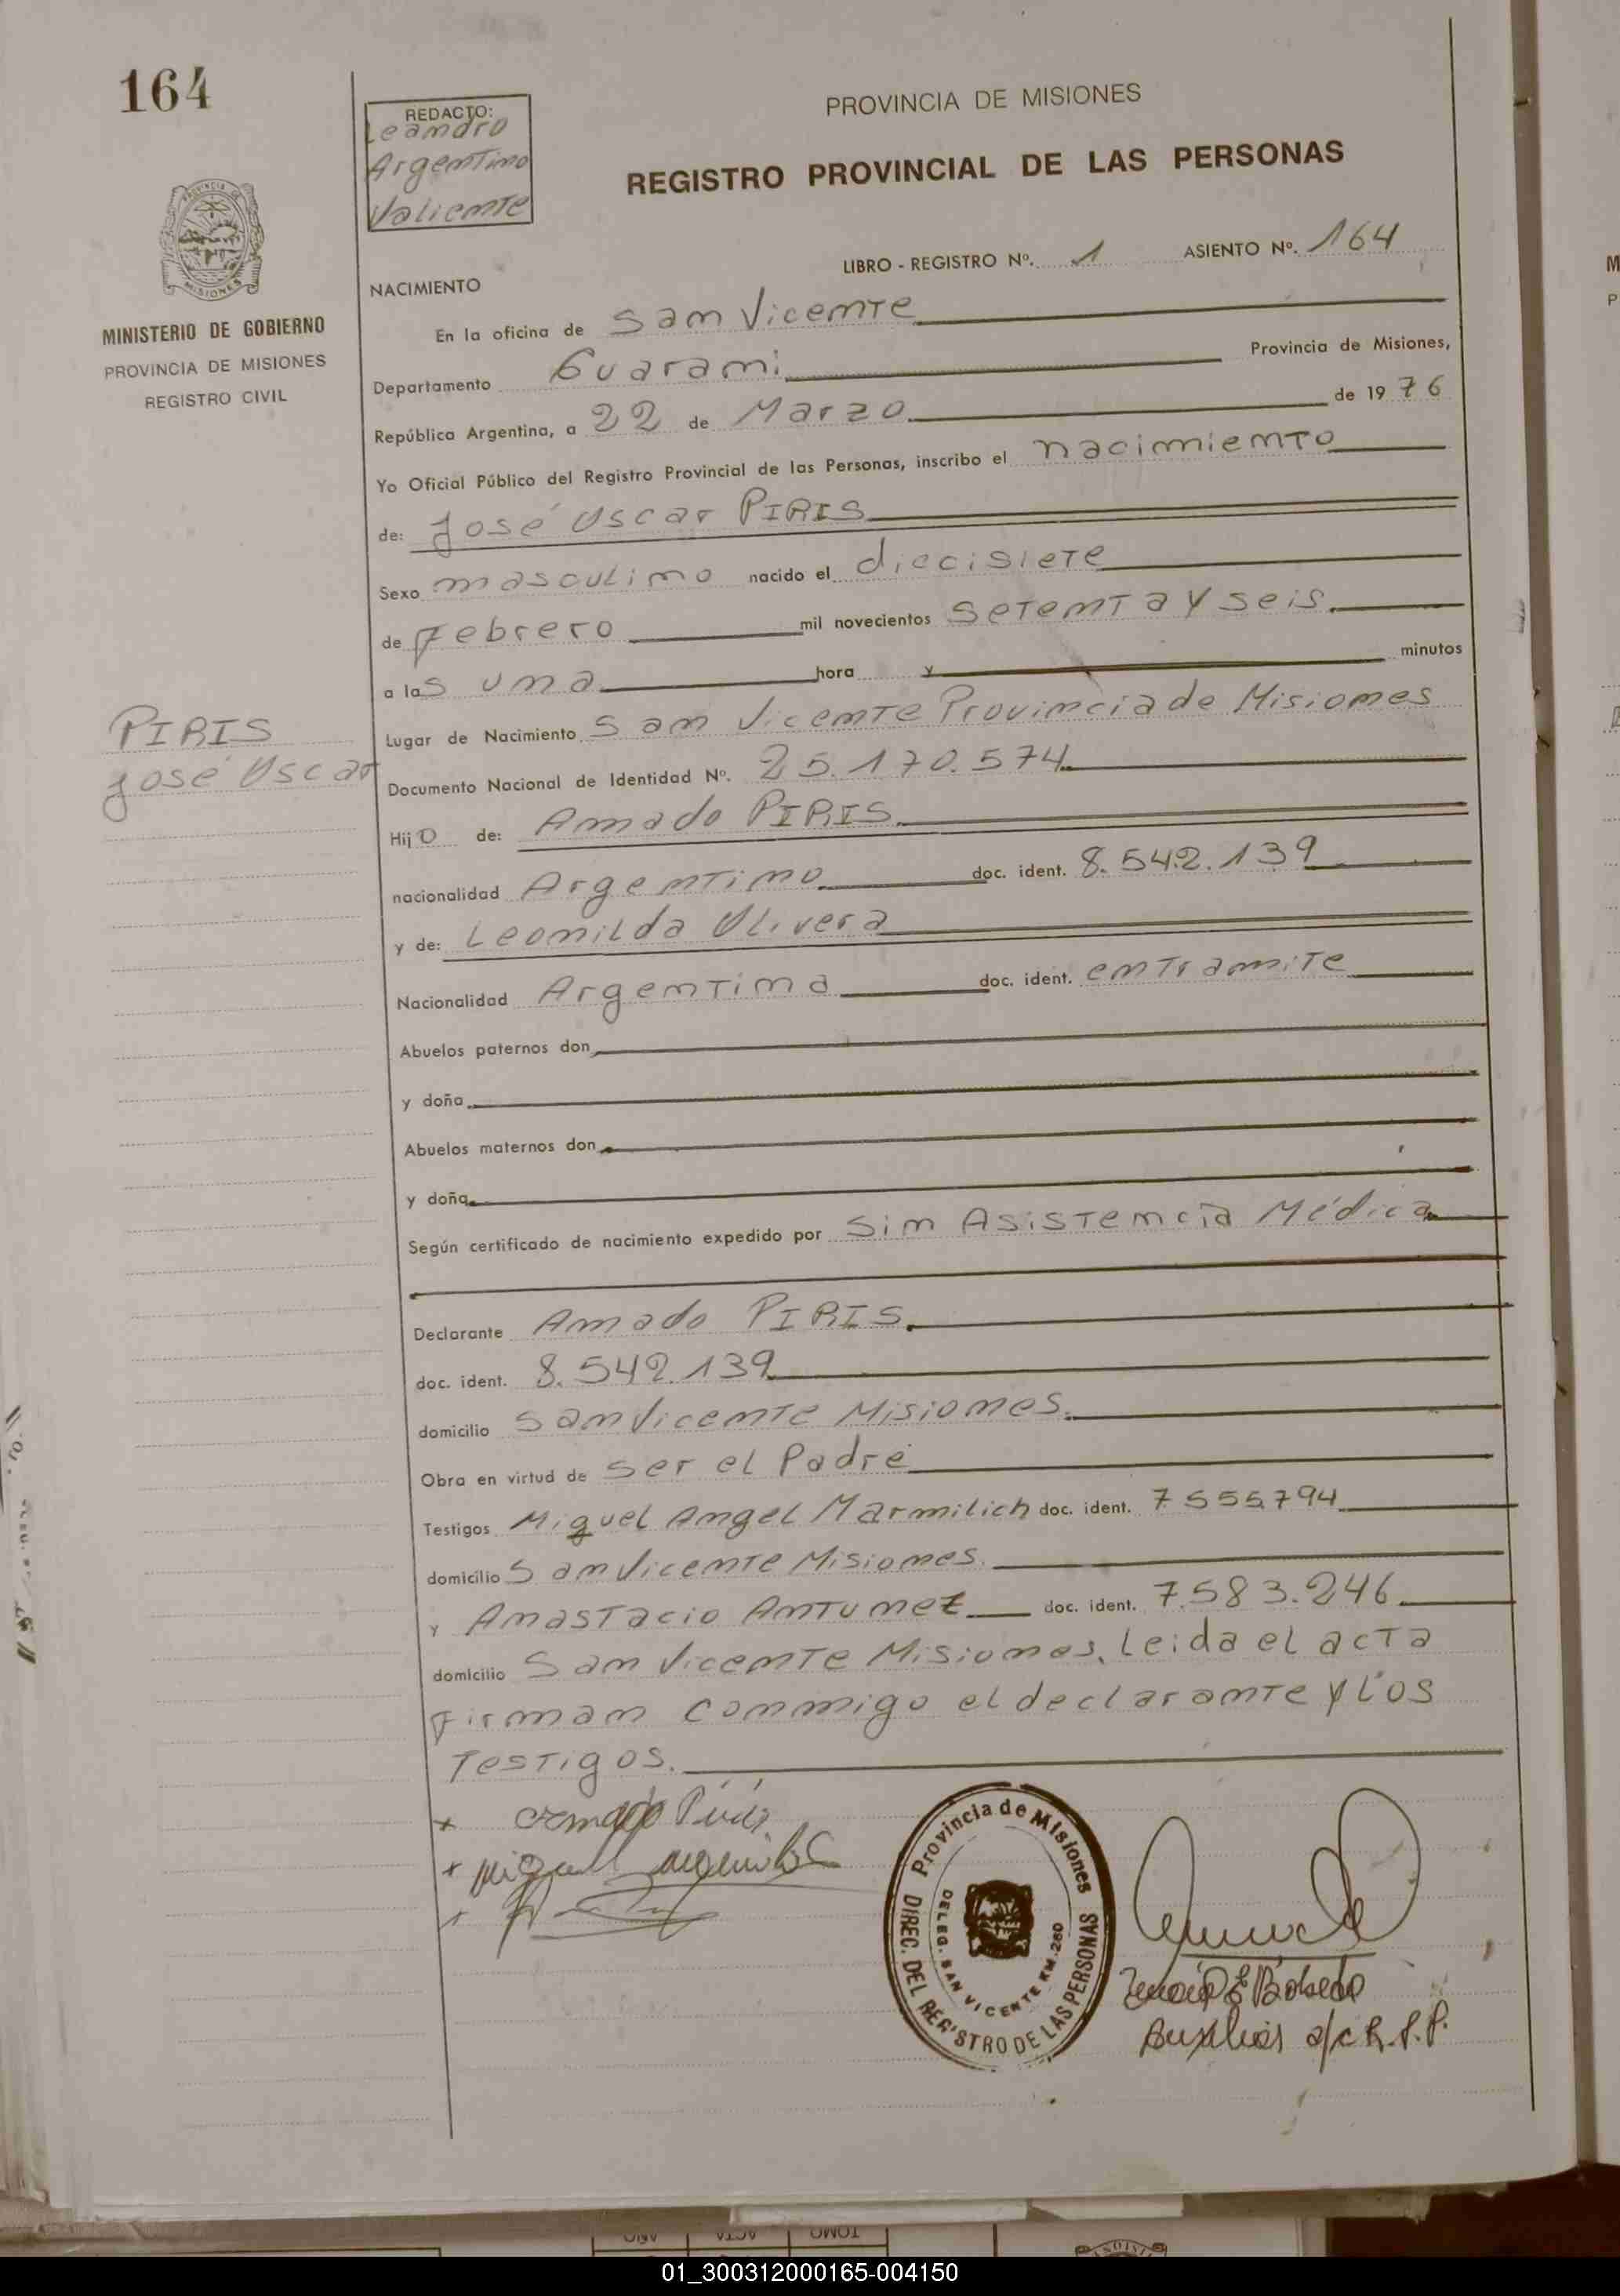 164
REDACTO:
Leandro
Argentino
Valiente
PROVINCIA DE MISIONES
REGISTRO PROVINCIAL DE LAS PERSONAS
LIBRO - REGISTRO Nº. 1 ASIENTO Nº. 164
MINISTERIO DE GOBIERNO
PROVINCIA DE MISIONES
REGISTRO CIVIL
NACIMIENTO
En la oficina de San Vicente
Departamento Guarani Provincia de Misiones,
República Argentina, a 22 de Marzo de 1976
Yo Oficial Público del Registro Provincial de las Personas, inscribo el nacimiento
de: José Oscar PIRIS
Sexo masculino nacido el diecisiete
de Febrero mil novecientos setenta y seis.
a las una hora y minutos
Lugar de Nacimiento San Vicente Provincia de Misiones
PIRIS
José Oscar
Documento Nacional de Identidad Nº. 25.170.574
Hijo de: Amado PIRIS
nacionalidad Argentino doc. ident. 8.542.139
y de: Leonilda Olivera
Nacionalidad Argentina doc. ident. en tramite
Abuelos paternos don
y doña
Abuelos maternos don
y doña
Según certificado de nacimiento expedido por Sin Asistencia Médica
Declarante Amado PIRIS.
doc. ident. 8.542.139
domicilio San Vicente Misiones.
Obra en virtud de ser el Padre
Testigos Miguel Angel Marmilich doc. ident. 7.555.794
domicilio San Vicente Misiones.
y Anastacio Antunez doc. ident. 7.583.246
domicilio San Vicente Misiones. Leida el acta
Firman conmigo el declarante y los
Testigos.
Amado Piris
Miguel
Provincia de Misiones
DIREC. DEL REGISTRO DE LAS PERSONAS
DELEG. SAN VICENTE KM. 260
Auxiliar a/c R.P.P.
TOMO ACTA AÑO
01_300312000165-004150